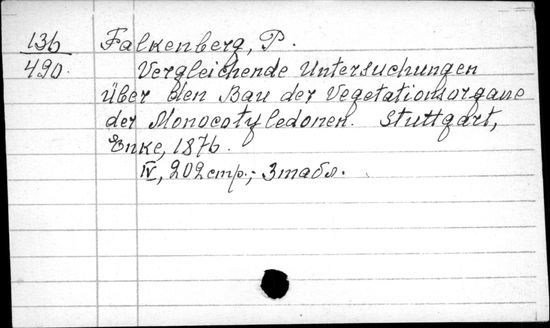 136
490.
Falkenberg, P.
Vergleichende Untersuchungen
über den Bau der Vegetationsorgane
der Monocotyledonen. Stuttgart,
Enke, 1876.
IV, 202 стр.; 3 табл.